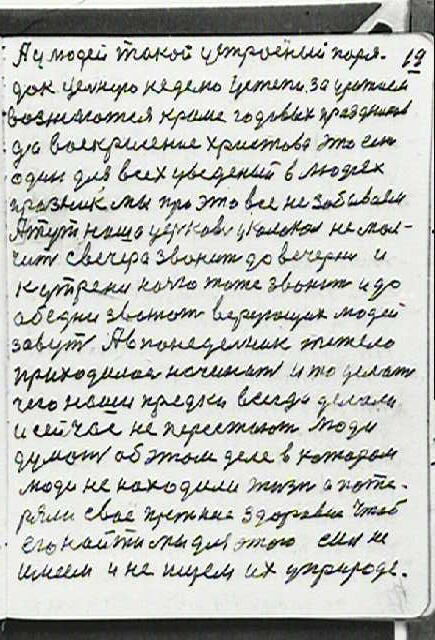 А у людей такой устроеный поря- 19
док целную неделю чистки за
возмаются кроме годовых праздников
да воскресение христова это син
один для всех уведеный в людях
празник мы про это все не забываем
А тут наша церковь уколокол не мол-
чит с вечера звонит до вечерни и
к утрени ночю тоже звонит и до
обедни звонют верующих людей
завут А в понедельник тяжело
приходилося начинать и то делать
чего наши предки всегда делали
и сейчас не перестают люди
думать об этом деле в котором
люди не находили жизни а поте-
ряли свое прежнее здоровие Чтоб
его найти мы для этого сил не
имеем и не ищем их у природе.